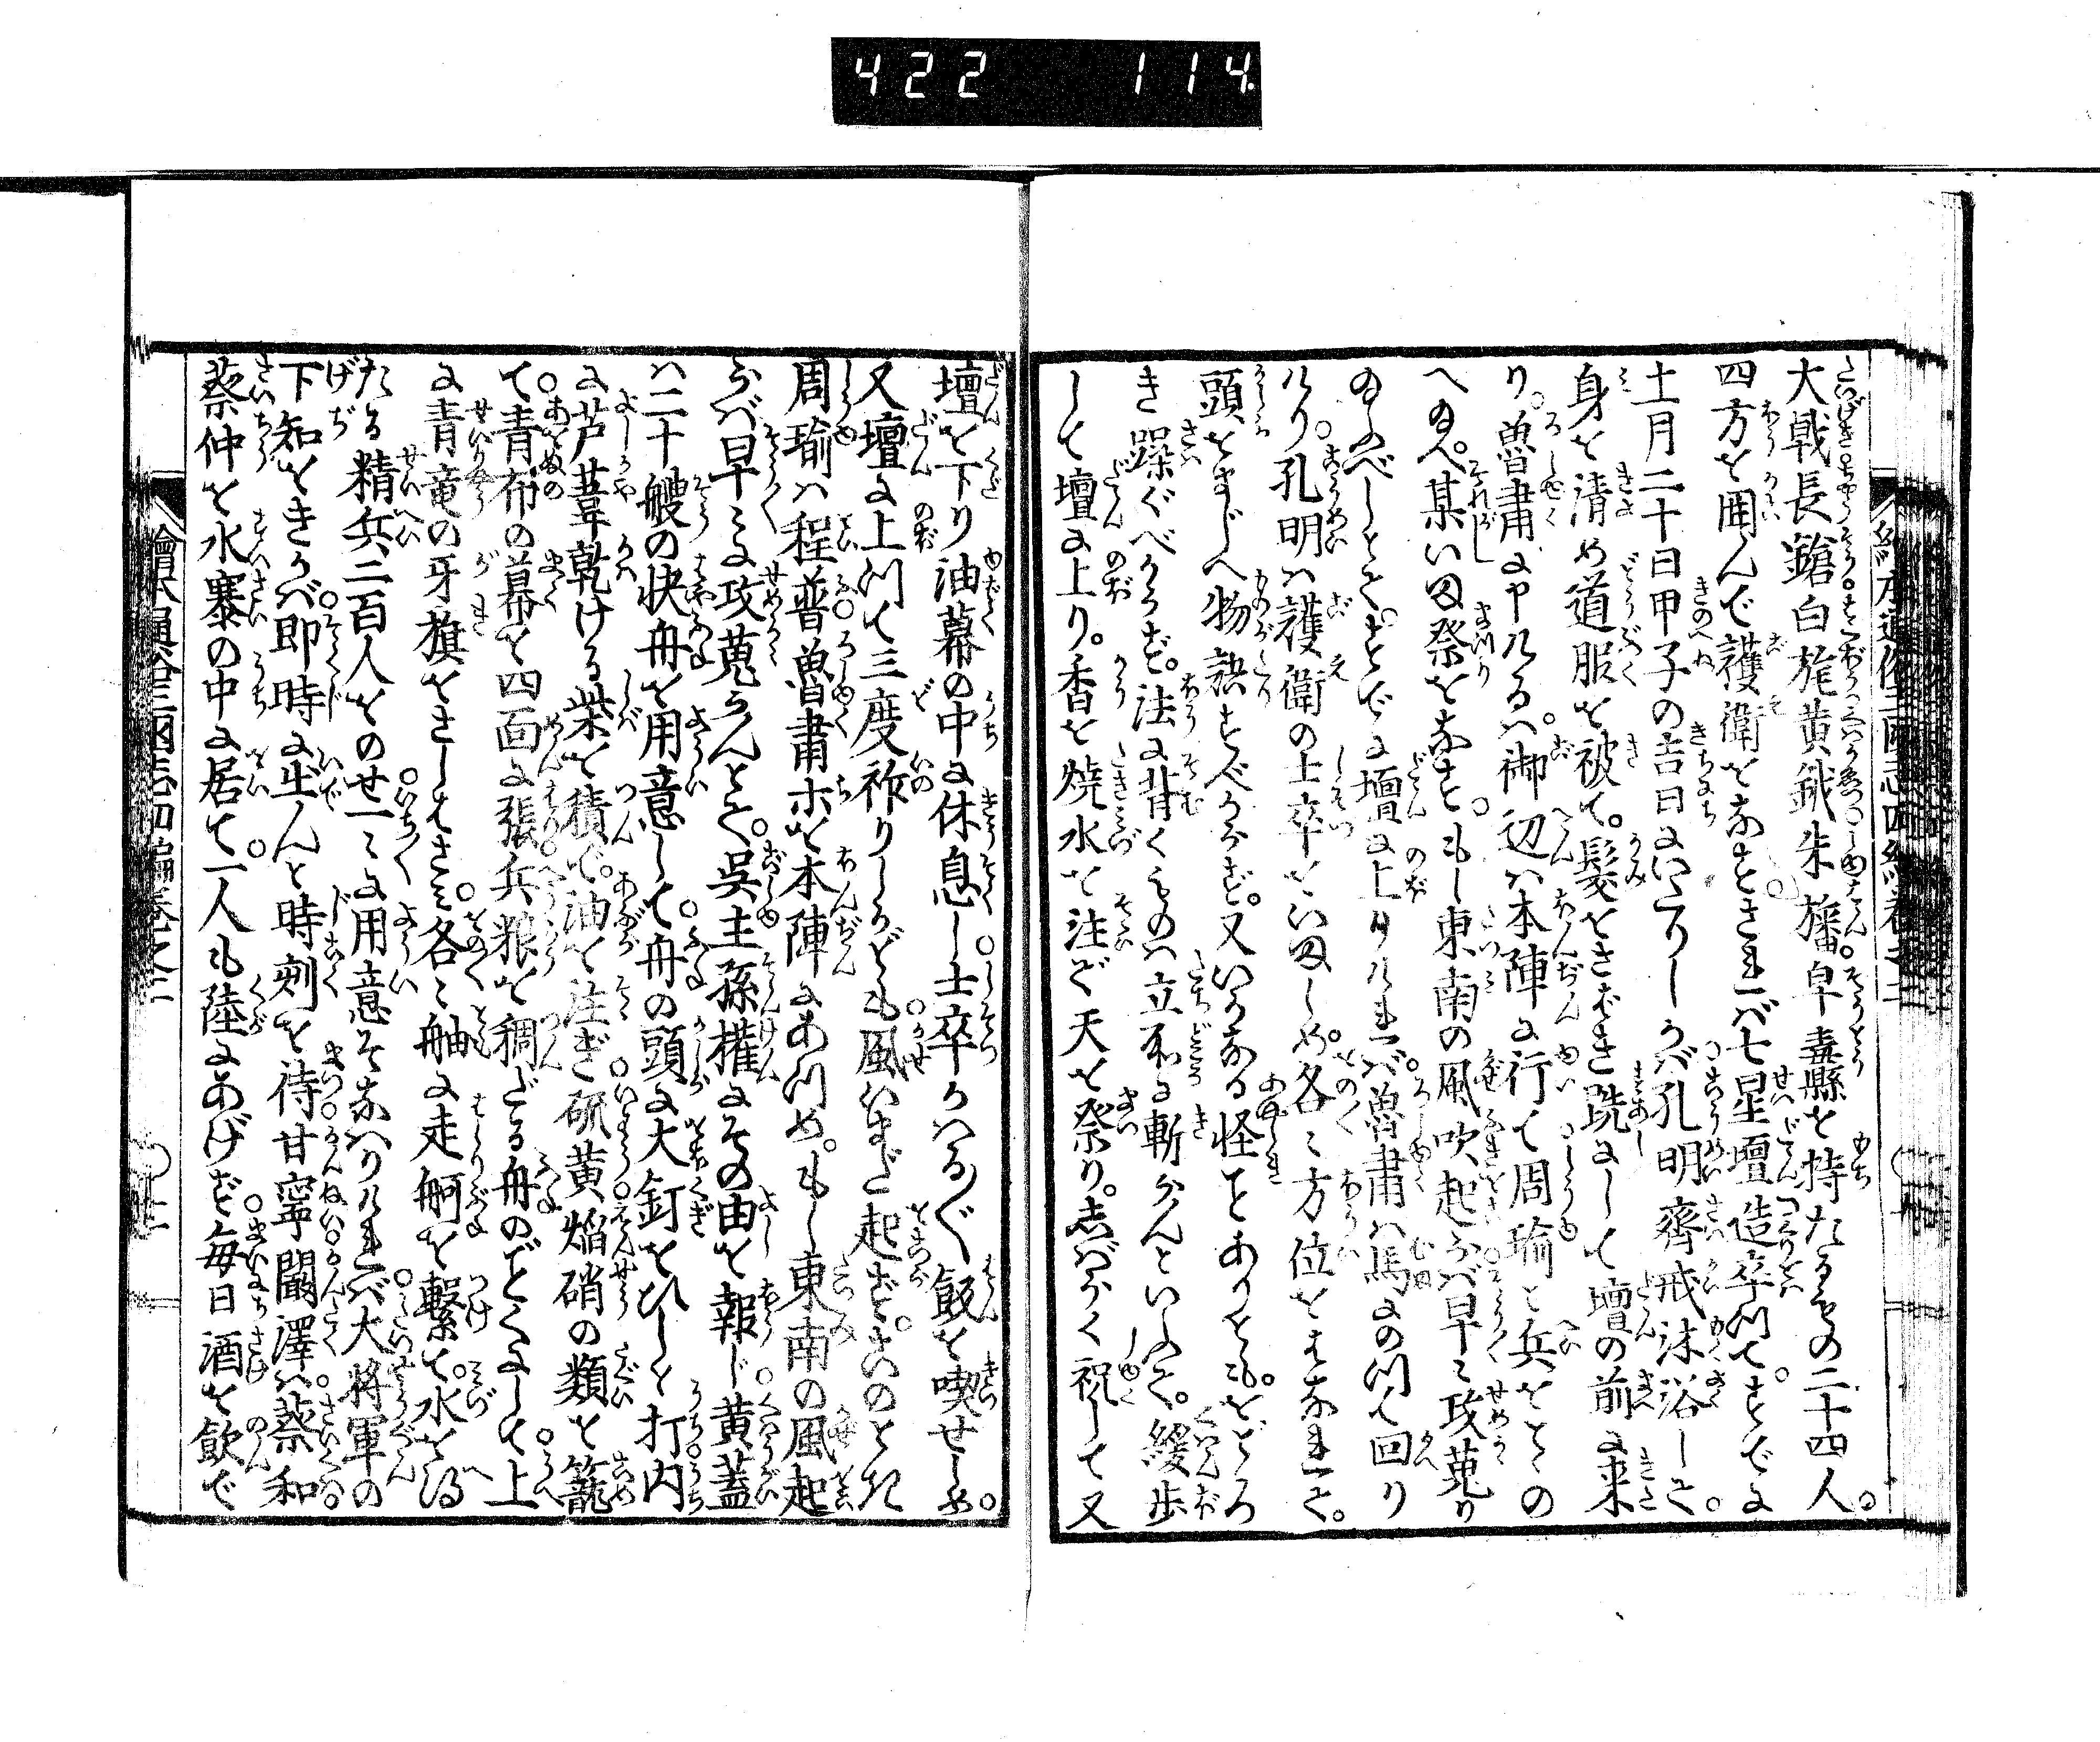 422 114
大戟長鎗白旄黄鉞朱旛皂纛を持たるもの二十四人。
四方を囲んで護衛をなさしむされば七星壇造卒つて。すでに
十一月二十日甲子の吉日にいたりしかば孔明齊戒沐浴して。
身を清め道服を被て。髪をさばき跣にして壇の前に来
り。魯肅に申けるは。御辺は本陣に行て周瑜と兵をとゝの
へ給へ。某いま祭をなす。もし東南の風吹起らば早々攻蒐り
給ふべしとて。すでに壇に上りければ。魯肅は馬にのつて回り
けり。孔明は護衛の士卒をいましめ。各々方位をはなれて。
頭をまじへ物語すべからず。又いかなる怪ことありとも。をどろ
き躁ぐべからず。法に背くものは立所に斬らんといふて。緩歩
して壇に上り。香を焼水を注ぎ天を祭り。しばらく祝して又
壇を下り油幕の中に休息し。士卒かはる〲飯を喫せしめ。
又壇に上つて三度祚りしかども風いまだ起ず。さいのとき
周瑜は程普魯肅ホを本陣にあつめ。もし東南の風起
らば早々に攻蒐らんとて。呉主孫權にその由を報じ黄蓋
は二十艘の快舟を用意して。舟の頭に大釘をひしと打内
に芦葦乾ける柴を積で。油を注ぎ硫黄焔硝の類を籠
て。青布の幕を四面に張兵粮を稠だる舟のごとくにして上
に青竜の牙旗をさしはさみ。各々舳に走舸を繋て。水を得
たる精兵二百人をのせ一々に用意そなへりければ大將軍の
下知をきかば。即時に出んと時剋を待甘寧闞澤は蔡和
蔡仲を水寨の中に居て。一人も陸にあげず毎日酒を飲で
繪本通俗三國志四編巻之二